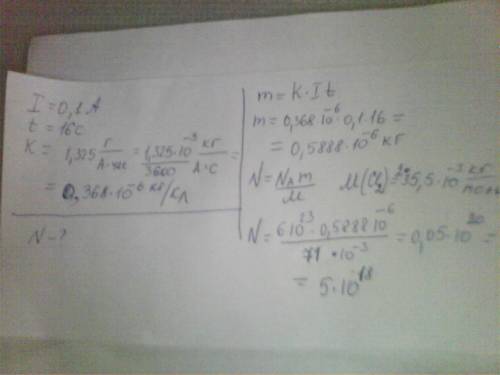 I = 0,1 A
t = 16 c
K = 1,325 г/А·час = 1,325·10⁻³/3600 кг/А·с =
= 0,368·10⁻⁶ кг/Кл
N - ?
m = K·I t
m = 0,368·10⁻⁶·0,1·16 =
= 0,5888·10⁻⁶ кг
N = Nₐm/M M(Cl₂) = 35,5·10⁻³ кг/моль
N = 6·10²³·0,5888·10⁻⁶/71·10⁻³ = 0,05·10²⁰ =
= 5·10¹⁸